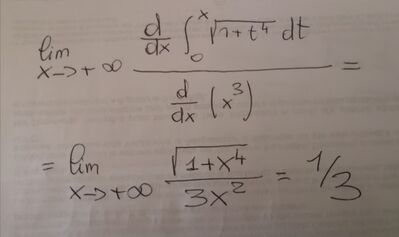 lim x->+∞ d/dx ∫₀ˣ √1+t⁴ dt / d/dx (x³) =
= lim x->+∞ √1+x⁴ / 3x² = 1/3